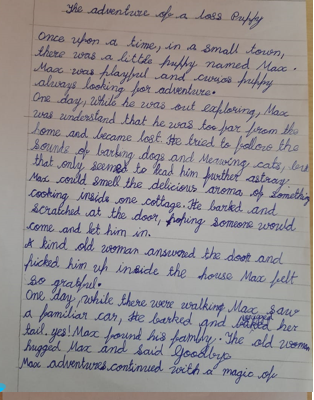 The adventure of a loss Puppy
Once upon a time, in a small town,
there was a little puppy named Max.
Max was playful and puppy
always looking for adventure.
One day, while he was out exploring, Max
was understand that he was too far from the
home and became lost. He tried to follow the
sounds of barking dogs and Meowing cats, but
that only seemed to lead him further astray.
Max could smell the delicious aroma of something
cooking inside one cottage. He barked and
scratched at the door, hoping someone would
come and let him in.
A kind old woman answered the door and
picked him up inside the house Max felt
so grateful.
One day, while there were walking Max saw
a familiar car, He barked and her
tail yes! Max found his family. The old woman
hugged Max and said Goodbye
Max adventures continued with a magic of